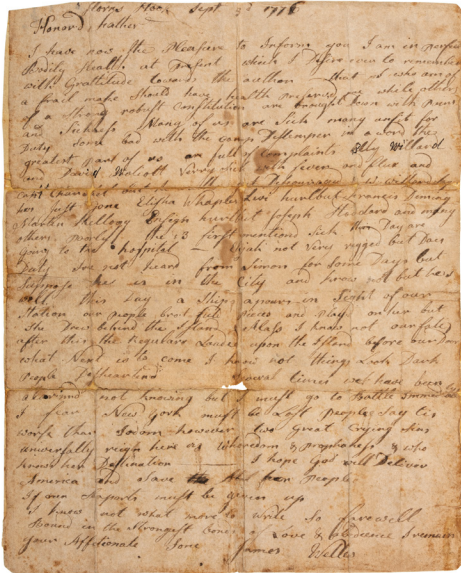 Horns Hook Sept 3d 1776
Honord Father
I have now the Pleasure to Inform you I am in perfect
Bodily Health at present which I desire ever to remember
with Grattitude toward the author that I who am of
a frail make Should have health preserved me while others
of a Strong robust Constitution are brought Down with pain
and Sickness Many of us are Sick many unfit for
Duty Some bad with the camp Distemper in a word the
greatest part of us are full of complaints Elly Willard
and David Walcott Very Sick with fever and flux and
just gone Elisha Whaples Levi hurlbut Frances Deming
Martin Kellogg Ensign hurlbut Joseph Stodard and many
others the 3 first mentiond Sick this Day are
going to the hospital not Very rugged but Does
Duty Ive not heard from Simon for Some Days but
Suppose he is in the City and know not but he is
well this Day a Ship in Sight of our
Station our people brot field pieces and playd on hur but
She Drew behind the Island I know not our fate
after this the Regulars Landed upon the Island before our Door
what Next is to come I know not things Look Dark
People Disheartend Several times we have been
not knowing but must go to Battle
I fear New York must be Lost People Say tis
worse than Sodom however two great Crying Sins
universally reign here as Whoredom & Prophaness & who
knows her Destination I hope God will Deliver
America and Save this People
If our Seaports must be given up
I know not what more to write So farewell
in the Strongest bonds of Love & obedience I remain
your Affctionate Sone James Welles